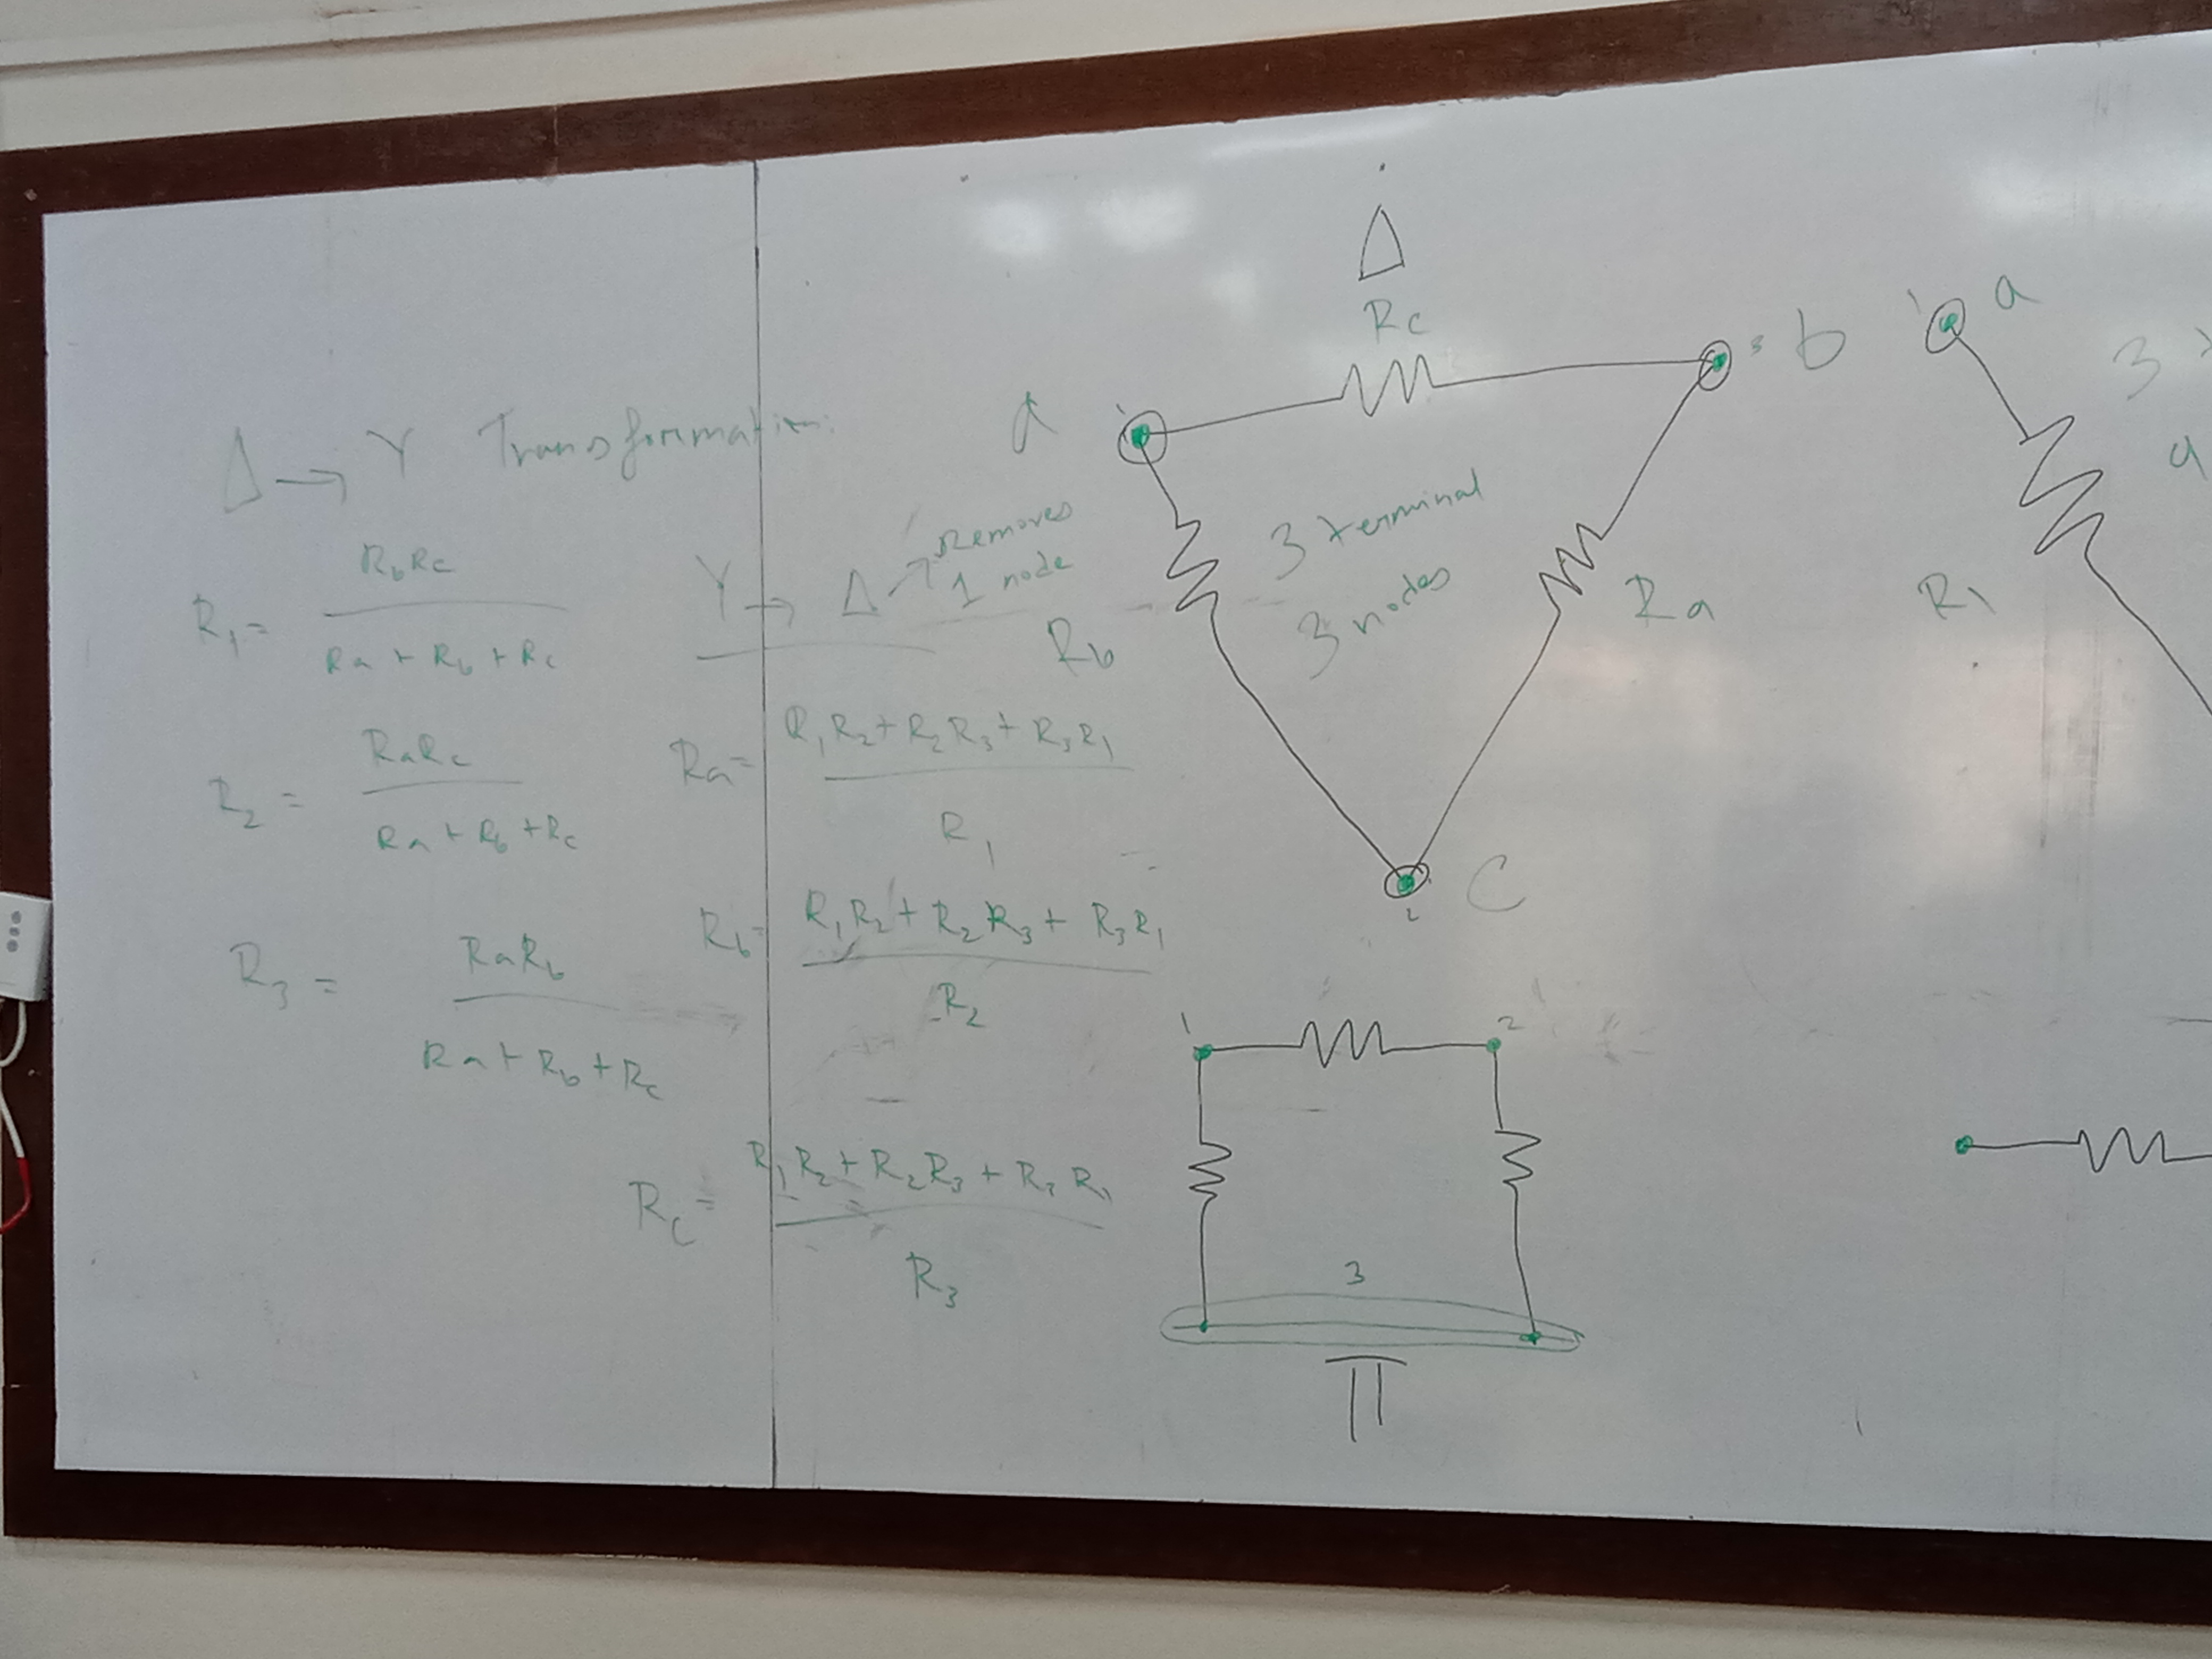 Δ → Y Transformation:
R₁ = RbRc / Ra + Rb + Rc
R₂ = RaRc / Ra + Rb + Rc
R₃ = RaRb / Ra + Rb + Rc
Y → Δ → Removes
1 node
Ra = R₁R₂ + R₂R₃ + R₃R₁ / R₁
Rb = R₁R₂ + R₂R₃ + R₃R₁ / R₂
Rc = R₁R₂ + R₂R₃ + R₃R₁ / R₃
Δ
Rc
a
3 b
3 terminal
3 nodes
Rb
Ra
C
1 2
3
Π
a
3
R₁